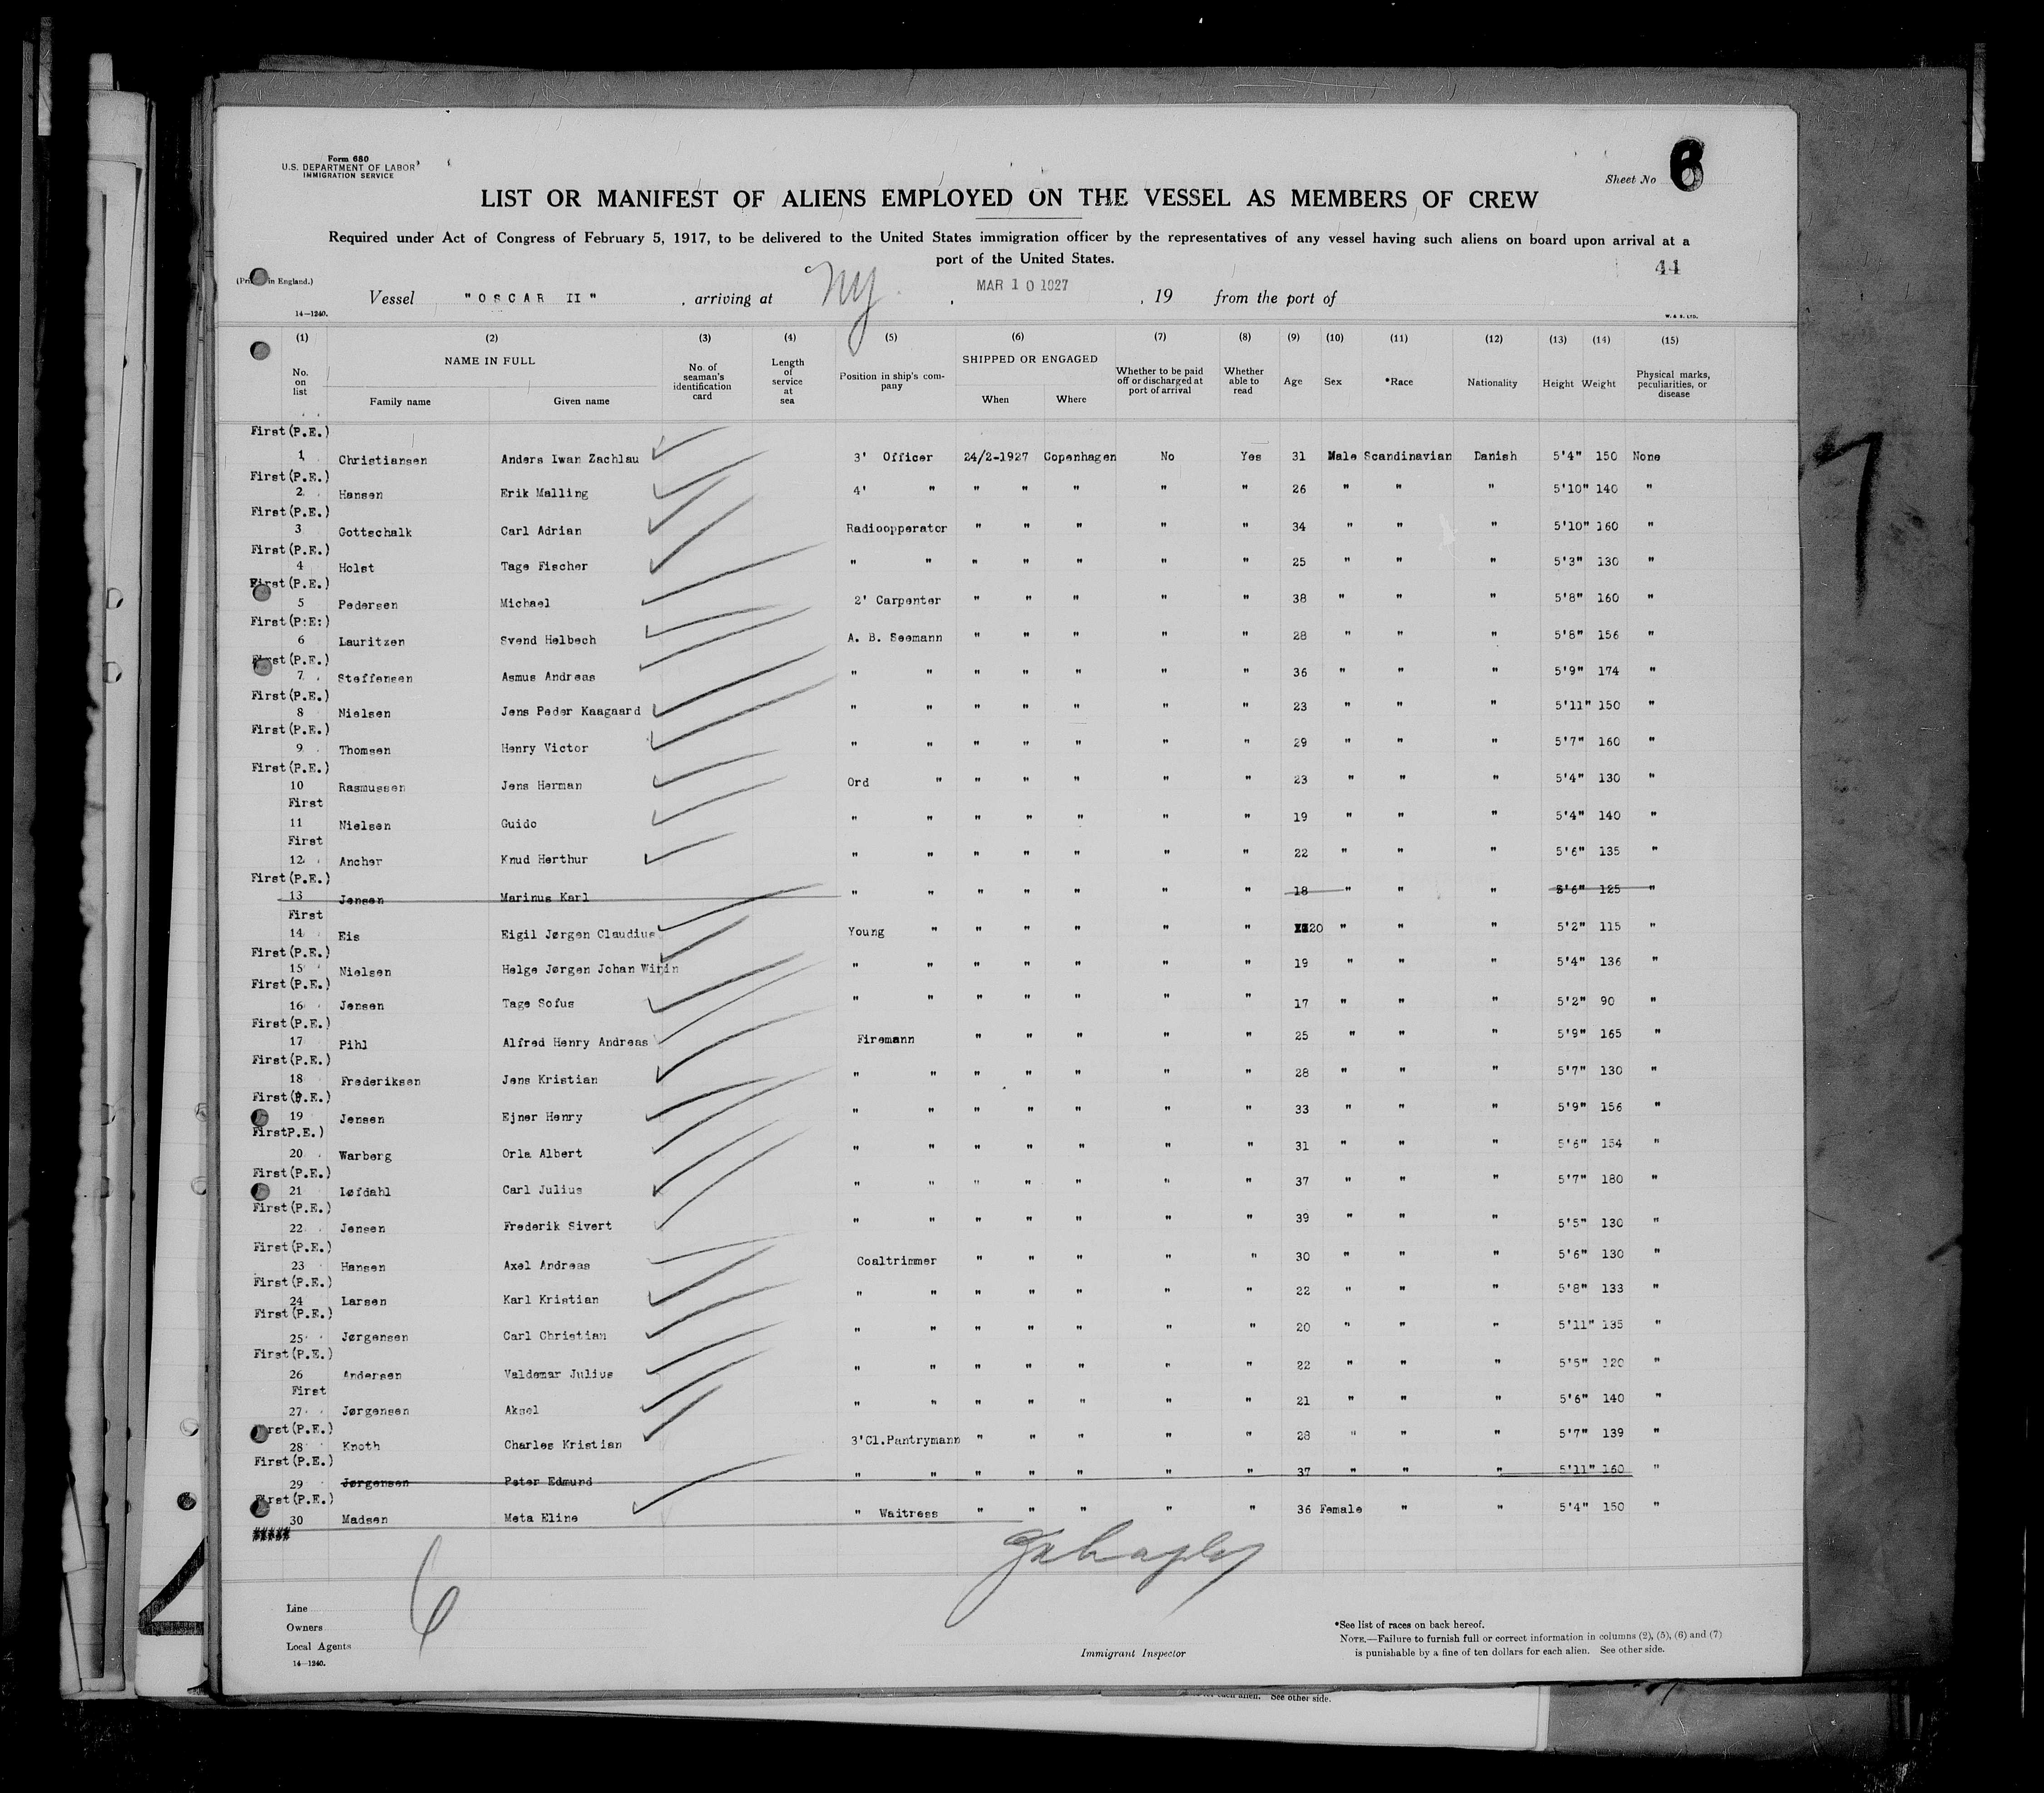 Form 680
U.S. DEPARTMENT OF LABOR
IMMIGRATION SERVICE
Sheet No 6
LIST OR MANIFEST OF ALIENS EMPLOYED ON THE VESSEL AS MEMBERS OF CREW
Required under Act of Congress of February 5, 1917, to be delivered to the United States immigration officer by the representatives of any vessel having such aliens on board upon arrival at a
port of the United States.
44
in England.)
Vessel "OSCAR II", arriving at NY, MAR 10 1927, 19 from the port of
14—1240. W. & S. LTD.
(1) (2) (3) (4) (5) (6) (7) (8) (9) (10) (11) (12) (13) (14) (15)
No. on list NAME IN FULL Family name Given name No. of seaman's identification card Length of service at sea Position in ship's company SHIPPED OR ENGAGED When Where Whether to be paid off or discharged at port of arrival Whether able to read Age Sex *Race Nationality Height Weight Physical marks, peculiarities, or disease
First(P.E.)
1 Christiansen Anders Iwan Zachlau 3' Officer 24/2-1927 Copenhagen No Yes 31 Male Scandinavian Danish 5'4" 150 None
First(P.E.)
2 Hansen Erik Malling 4' " " " " " " 26 " " " 5'10" 140 "
First(P.E.)
3 Gottschalk Carl Adrian Radioopperator " " " " " 34 " " " 5'10" 160 "
First(P.E.)
4 Holst Tage Fischer " " " " " " " 25 " " " 5'3" 130 "
First(P.E.)
5 Pedersen Michael 2' Carpenter " " " " " 38 " " " 5'8" 160 "
First(P:E:)
6 Lauritzen Svend Helbech A. B. Seemann " " " " " 28 " " " 5'8" 156 "
First(P.E.)
7 Steffensen Asmus Andreas " " " " " " " 36 " " " 5'9" 174 "
First(P.E.)
8 Nielsen Jens Peder Kaagaard " " " " " " " 23 " " " 5'11" 150 "
First(P.E.)
9 Thomsen Henry Victor " " " " " " " 29 " " " 5'7" 160 "
First(P.E.)
10 Rasmussen Jens Herman Ord " " " " " " 23 " " " 5'4" 130 "
First
11 Nielsen Guido " " " " " " " 19 " " " 5'4" 140 "
First
12 Ancher Knud Herthur " " " " " " " 22 " " " 5'6" 135 "
First(P.E.)
13 Jensen Marinus Karl " " " " " " " 18 " " " 5'6" 125 "
First
14 Eis Eigil Jørgen Claudius Young " " " " " " 20 " " " 5'2" 115 "
First(P.E.)
15 Nielsen Helge Jørgen Johan " " " " " " " 19 " " " 5'4" 136 "
First(P.E.)
16 Jensen Tage Sofus " " " " " " " 17 " " " 5'2" 90 "
First(P.E.)
17 Pihl Alfred Henry Andreas Firemann " " " " " 25 " " " 5'9" 165 "
First(P.E.)
18 Frederiksen Jens Kristian " " " " " " " 28 " " " 5'7" 130 "
First(P.E.)
19 Jensen Ejner Henry " " " " " " " 33 " " " 5'9" 156 "
FirstP.E.)
20 Warberg Orla Albert " " " " " " " 31 " " " 5'6" 154 "
First(P.E.)
21 Løfdahl Carl Julius " " " " " " " 37 " " " 5'7" 180 "
First(P.E.)
22 Jensen Frederik Sivert " " " " " " " 39 " " " 5'5" 130 "
First(P.E.)
23 Hansen Axel Andreas Coaltrimmer " " " " " 30 " " " 5'6" 130 "
First(P.E.)
24 Larsen Karl Kristian " " " " " " " 22 " " " 5'8" 133 "
First(P.E.)
25 Jørgensen Carl Christian " " " " " " " 20 " " " 5'11" 135 "
First(P.E.)
26 Andersen Valdemar Julius " " " " " " " 22 " " " 5'5" 120 "
First
27 Jørgensen Aksel " " " " " " " 21 " " " 5'6" 140 "
First(P.E.)
28 Knoth Charles Kristian 3'Cl.Pantrymann " " " " " 28 " " " 5'7" 139 "
First(P.E.)
29 Jørgensen Peter Edmund " " " " " " " 37 " " " 5'11" 160 "
First(P.E.)
30 Madsen Meta Eline " Waitress " " " " " 36 Female " " 5'4" 150 "
6
Line
Owners
Local Agents
14—1240.
Immigrant Inspector
*See list of races on back hereof.
NOTE.—Failure to furnish full or correct information in columns (2), (5), (6) and (7)
is punishable by a fine of ten dollars for each alien. See other side.
See other side.